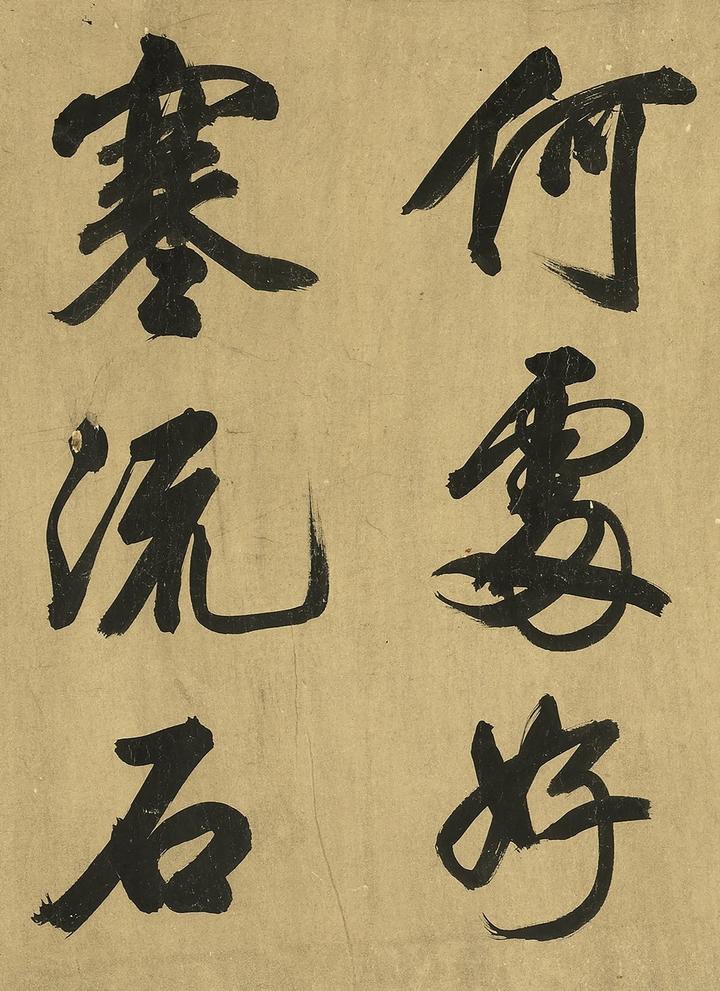 何處好
寒流石